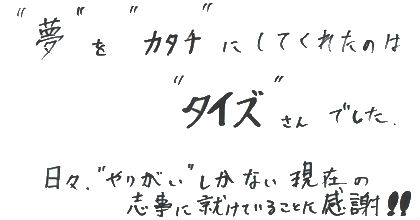 "夢"を"カタチ"にしてくれたのは
"タイズ"さんでした.
日々、"やりがい"しかない現在の
志事に就けていることに感謝!!